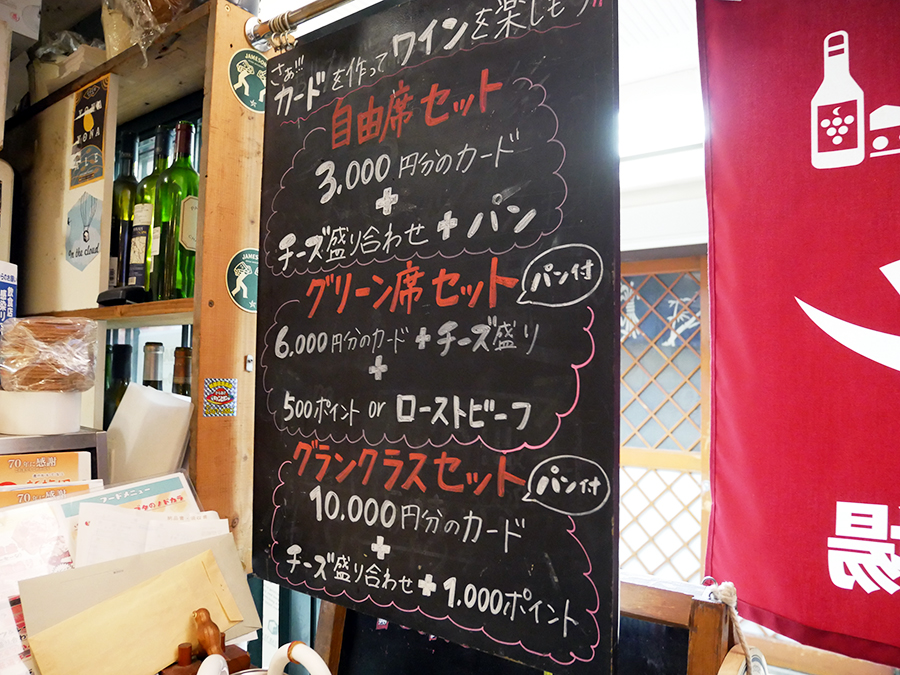 さぁ!!!
カードを作ってワインを楽しもう
自由席セット
3,000円分のカード
+
チーズ盛り合わせ+パン
グリーン席セット
パン付
6,000円分のカード+チーズ盛り
+
500ポイント or ローストビーフ
グランクラスセット
パン付
10,000円分のカード
+
チーズ盛り合わせ+1,000ポイント
JAMESON
JAMES
YONA
ALE
On the cloud
飲食店
感染
70年に感謝
70年に感謝
フードメニュー
場